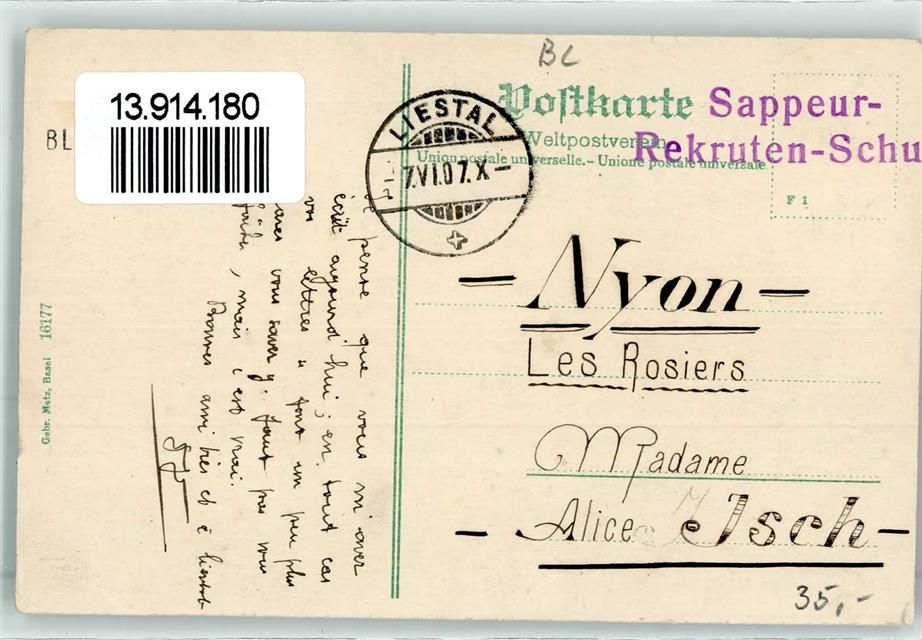 BL
13.914.180
BL
Postkarte
Sappeur-
Weltpostverein
Rekruten-Schu
Union postale universelle. - Unione postale universale
LIESTAL
7.VI.07.X-
F 1
- Nyon -
Les Rosiers
Madame
- Alice Jsch -
35,-
pense que vous m'avez
écrit aujourd'hui; en tout cas
vos lettres u font un peu plus
vous savez. faut pas vous
mais c'est vrai.
Bonnes amitiés et à bientôt
Gebr. Metz, Basel 16177